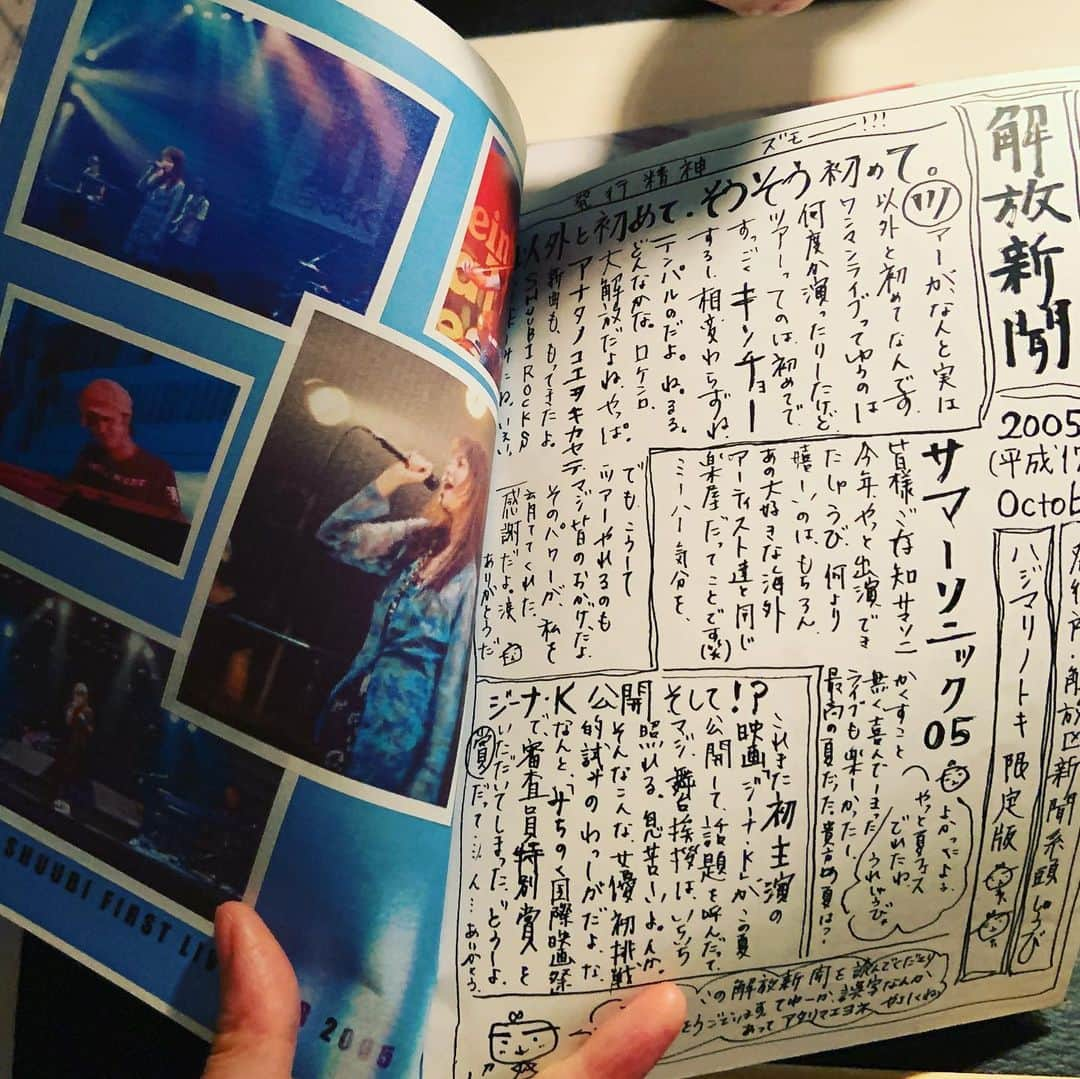 解放新聞
2005
(平成17
Octob
ハジマリノトキ 限定版
発行精神
ズモー!!!
以外と初めて.そうそう初めて。
ツアーが、なんと実は
以外と初めてなんです。
ワンマンライブってゆうのは
何度か演ったりしたけど
ツアーってのは、初めてで
すっごくキンチョー
するし、相変わらずね、
テンパルのだよ。ね。るる。
どんなかな。ロケンロ
大解放だよね、やっぱ。
アナタノコエヲキカセテ
新曲も、もってきたよ。
SHUUBI ROCKS
でも、こうして
ツアーやれるのも
マジ皆のおかげだよ。
そのパワーが、私を
育ててくれた。
感謝だよ。涙
ありがとうだ
サマーソニック05
皆様ご存知サマソニ
今年、やっと出演でき
たしゅうび、何より
嬉しいのは、もちろん
あの大好きな海外
アーティスト達と同じ
楽屋だってことです(笑)
ミーハー気分を、
かくすこと
無く喜んでしまった
ライブも楽しかったし
最高の夏だった。貴方の夏は?
よかったよぅ
やっと夏フェス
でれたね。
うれしゅうび。
ジーナ・K公開そして!?
これまた初主演の
映画「ジーナ・K」が、この夏
公開して、話題を呼んだって、
そマジ、舞台挨拶は、いちいち
照れる。息苦しいよ。んか。
そんなこんな、女優初挑戦
的試みのわっしーがだよ、な、
なんと、「みちのく国際映画祭」
で、審査員特別賞を
いただいてしまった。どうーよ。
賞だって…
ありがとう。
の解放新聞を読んでくださり
うございます。
誤字なんか
あってアタリマエヨネ
SHUUBI FIRST LIV
2005